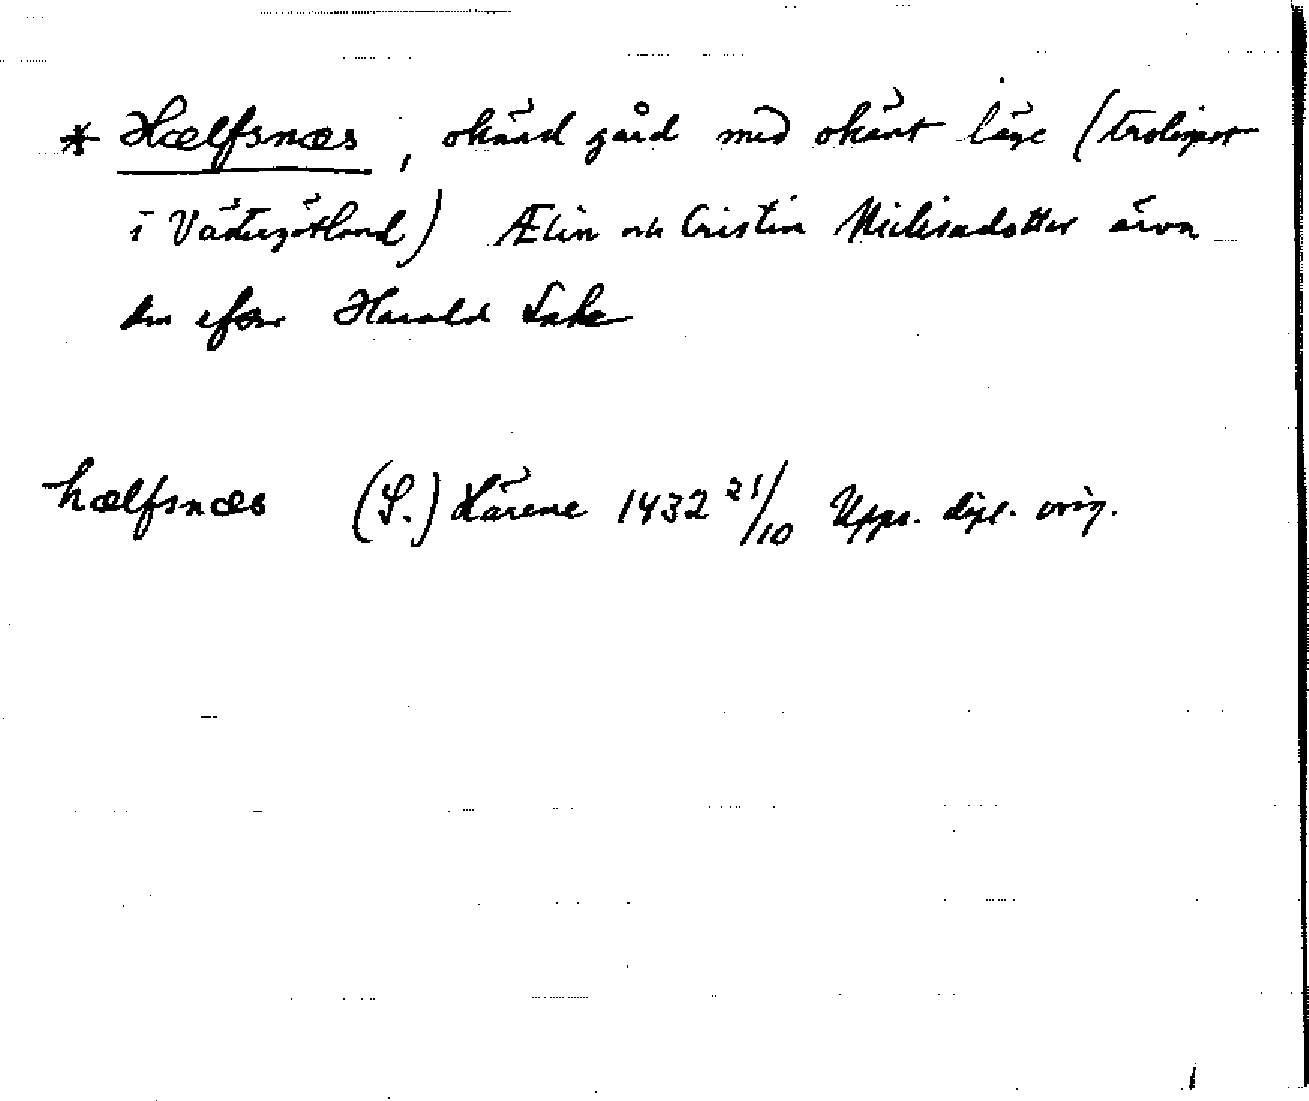 * Hælfsnæs, okänd gård med okänt läge (troligast
i Västergötland) Ælin och Cristin Niclisadotter ärva
den efter Harald Lake
hælfsnæs (S.) Härene 1432 21/10 Upps. dipl. orig.